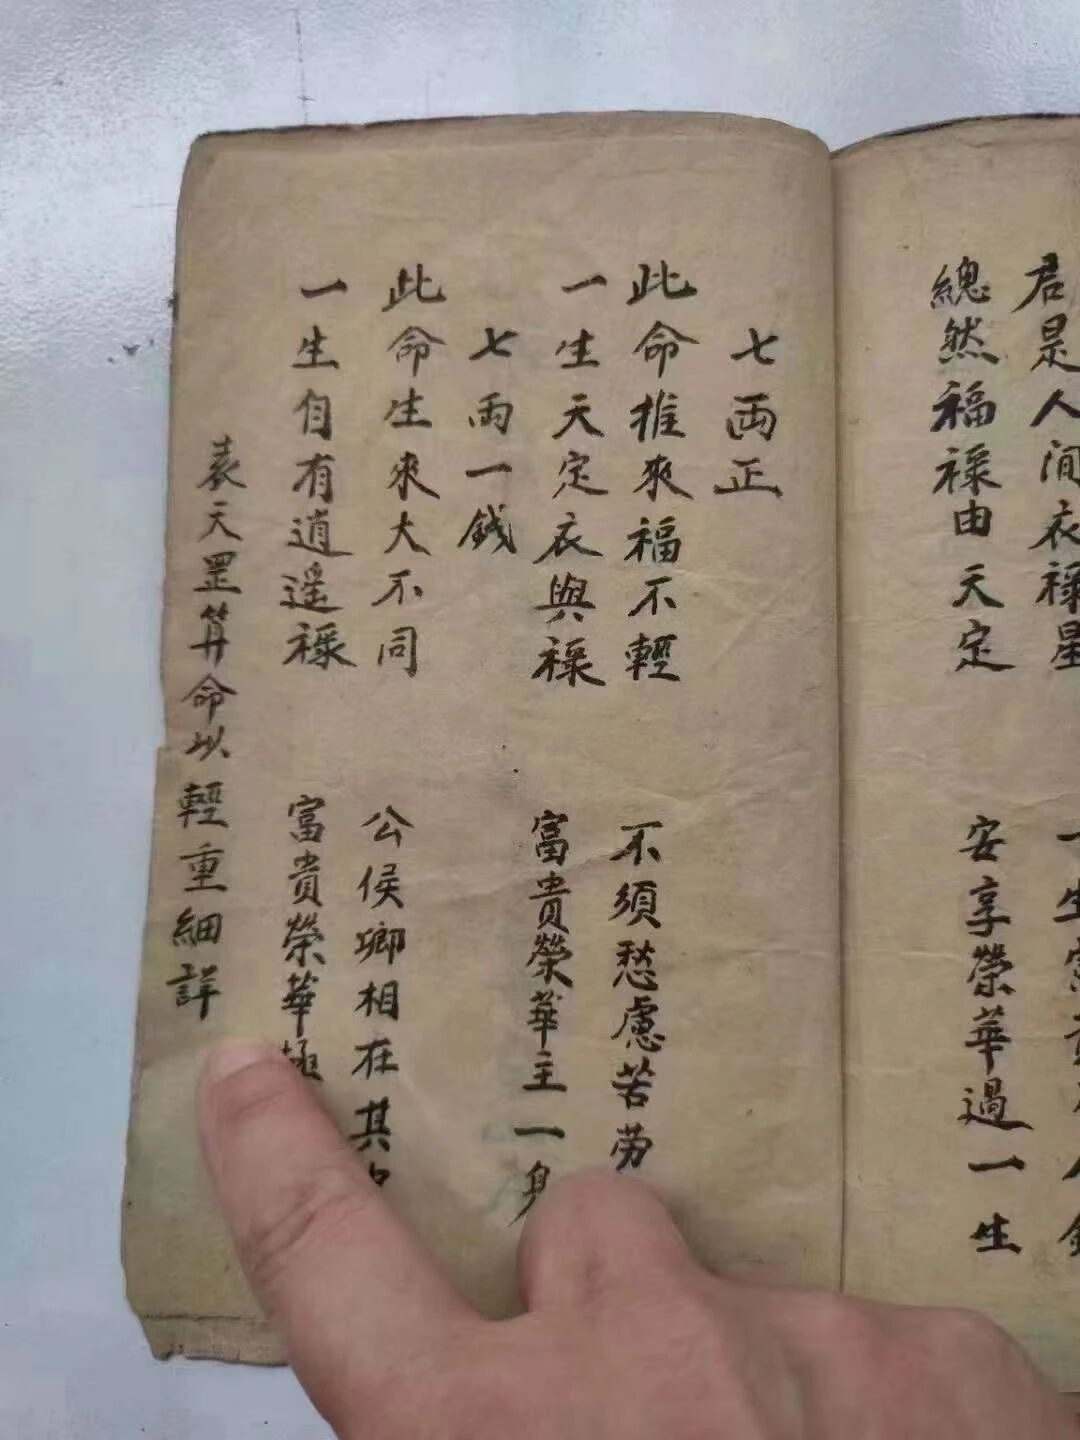 君是人间衣禄星
一生富貴
總然福禄由天定
安享榮華過一生
七両正
此命推來福不輕
不須愁慮苦劳
一生天定衣與禄
富貴榮華主一身
七両一錢
此命生來大不同
公侯卿相在其中
一生自有逍遥禄
富貴榮華極
袁天罡算命以輕重細詳